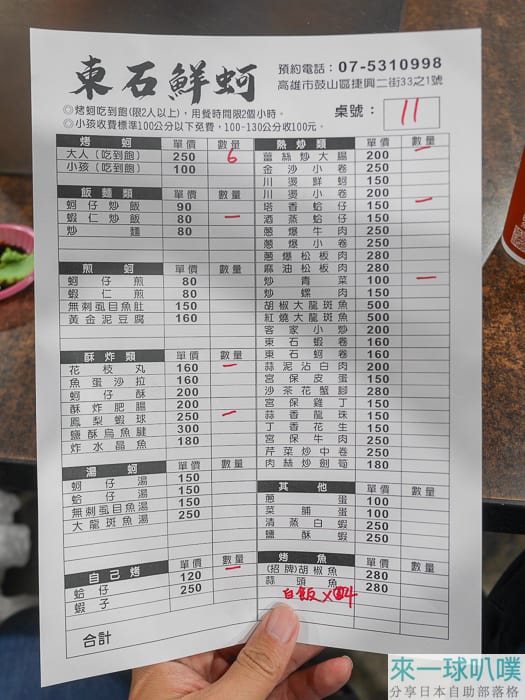 東石鮮蚵
預約電話：07-5310998
高雄市鼓山區捷興二街33之1號
◎烤蚵吃到飽(限2人以上)，用餐時間限2個小時。
◎小孩收費標準100公分以下免費，100-130公分收100元。
桌號： 11
烤蚵 單價 數量
大人(吃到飽) 250 6
小孩(吃到飽) 100
飯麵類 單價 數量
蚵仔炒飯 90
蝦仁炒飯 80 一
炒麵 80
煎蚵 單價 數量
蚵仔煎 80
蝦仁煎 80
無刺虱目魚肚 150
黃金泥豆腐 160
酥炸類 單價 數量
花枝丸 160 一
魚蛋沙拉 160
蚵仔酥 200
酥炸肥腸 200
鳳梨蝦球 250 一
鹽酥烏魚腱 300
炸水晶魚 180
湯蚵 單價 數量
蚵仔湯 150
蛤仔湯 150
無刺虱目魚湯 150
大龍斑魚湯 250
自己烤 單價 數量
蛤仔 120 一
蝦子 250
合計
熱炒類 單價 數量
薑絲炒大腸 200 一
金沙小卷 250
川燙鮮蚵 150
川燙小卷 200
塔香蛤仔 150 一
酒蒸蛤仔 150
蔥爆牛肉 250
蔥爆小卷 250
蔥爆松板肉 280
麻油松板肉 280
炒青菜 100 一
炒螺肉 150
胡椒大龍斑魚 500
紅燒大龍斑魚 500
客家小炒 200
東石蝦卷 160
東石蚵卷 160
蒜泥沾白肉 200
宮保皮蛋 150
沙茶花蟹腳 280
宮保雞丁 150
蒜香龍珠 150
丁香花生 150
宮保牛肉 250
芹菜炒中卷 250
肉絲炒劍筍 180
其他 單價 數量
蔥蛋 100
菜脯蛋 100
清蒸白蝦 250
鹽酥蝦 250
烤魚 單價 數量
(招牌)胡椒魚 280
蒜頭魚 280
白飯 x 4
來一球叭噗
分享日本自助部落格